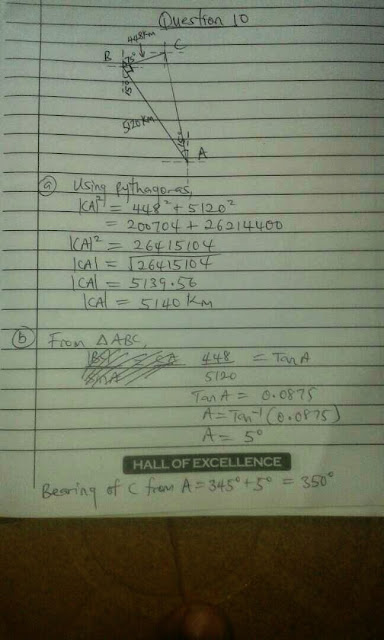 Question 10
448km
C
B
75°
5120km
15°
A
(a) Using Pythagoras,
|CA|² = 448² + 5120²
= 200704 + 26214400
|CA|² = 26415104
|CA| = √26415104
|CA| = 5139.56
|CA| = 5140 Km
(b) From △ABC,
448/5120 = Tan A
Tan A = 0.0875
A = Tan⁻¹(0.0875)
A = 5°
HALL OF EXCELLENCE
Bearing of C from A = 345° + 5° = 350°